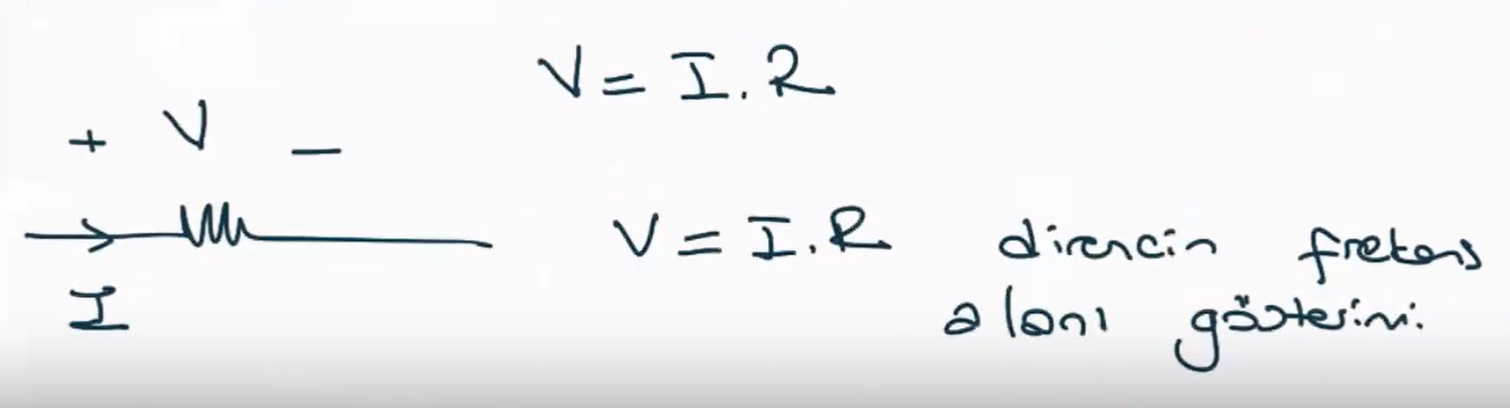 V = I . R
+ V −
V = I . R direncin frekans
alanı gösterimi.
I